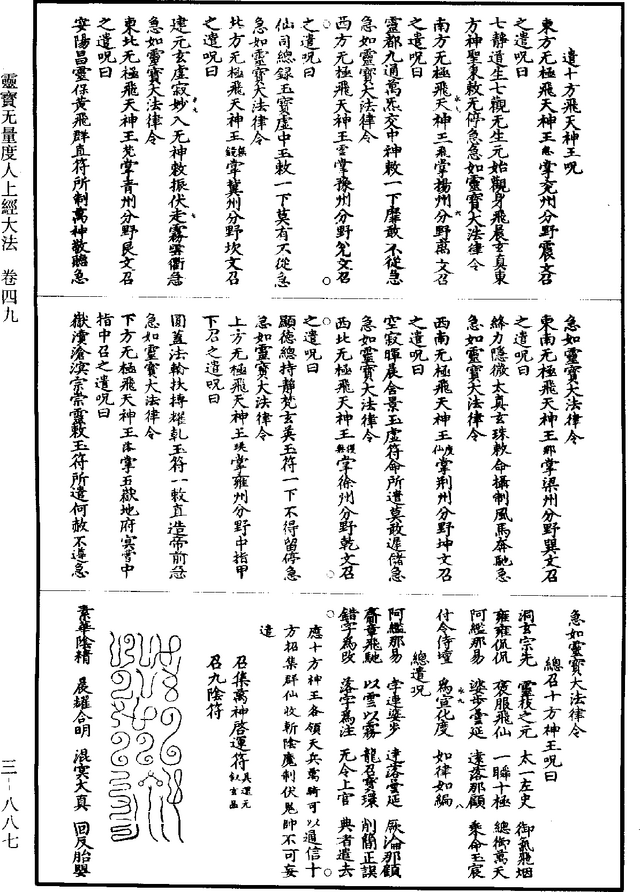 靈寶无量度人上經大法 卷四九
三-八八七
遣十方飛天神王呪
東方无極飛天神王掌兗州分野震文召
之遣呪曰
七靜道生七觀无生元始觀身飛晨玄真東
方神聖東敕无停急急如靈寶大法律令
南方无極飛天神王掌揚州分野离文召
之遣呪曰
靈都九通萬炁交中神敕一下靡敢不從急
急如靈寶大法律令
西方无極飛天神王掌豫州分野兌文召
之遣呪曰
仙司總錄玉寶虛中玉敕一下莫有不從急
急如靈寶大法律令
北方无極飛天神王掌冀州分野坎文召
之遣呪曰
建元玄虛寂妙入无神敕振伏走霧雲衢急
急如靈寶大法律令
東北无極飛天神王梵掌青州分野艮文召
之遣呪曰
安陽昌靈保黃飛群直符所制萬神敬聽急
急如靈寶大法律令
東南无極飛天神王那掌梁州分野巽文召
之遣呪曰
絳力隱微太真玄珠敕命攝制風馬奔馳急
急如靈寶大法律令
西南无極飛天神王度仙掌荆州分野坤文召
之遣呪曰
空寂暉晨合景玉虛符命所遣莫敢遲儲急
急如靈寶大法律令
西北无極飛天神王掌徐州分野乾文召
之遣呪曰
顯德總持靜梵玄英玉符一下不得留停急
急如靈寶大法律令
上方无極飛天神王掌雍州分野中指甲
下召之遣呪曰
圓蓋法輪扶摶耀乾玉符一敕直造帝前急
急如靈寶大法律令
下方无極飛天神王掌五嶽地府冥曹中
指中召之遣呪曰
嶽瀆滄溟宗崇靈敕玉符所遣何敢不遵急
急如靈寶大法律令
總召十方神王呪曰
洞玄宗先 靈枝之元 太一左史 御氣飛烟
雍雍侃侃 褒服飛仙 一瞬十極 總御萬天
阿艦那易 婆步臺延 逵落那顧 乘命玉宸
付令侍壇 爲宣化度 如律如編
總遣呪
阿艦那易 字連婆步 逵落臺延 厥淪那顧
齋章飛馳 以雲以霧 龍召寶環 削簡正誤
錯字爲改 落字爲注 无令上官 典者遣去
應十方神王各領天兵萬騎可以通信十
方招集群仙收斬陰魔制伏鬼帥不可妄
遣
召集萬神啓運符
召九陰符
素華陰精 晨耀合明 混寞大真 回反胎嬰